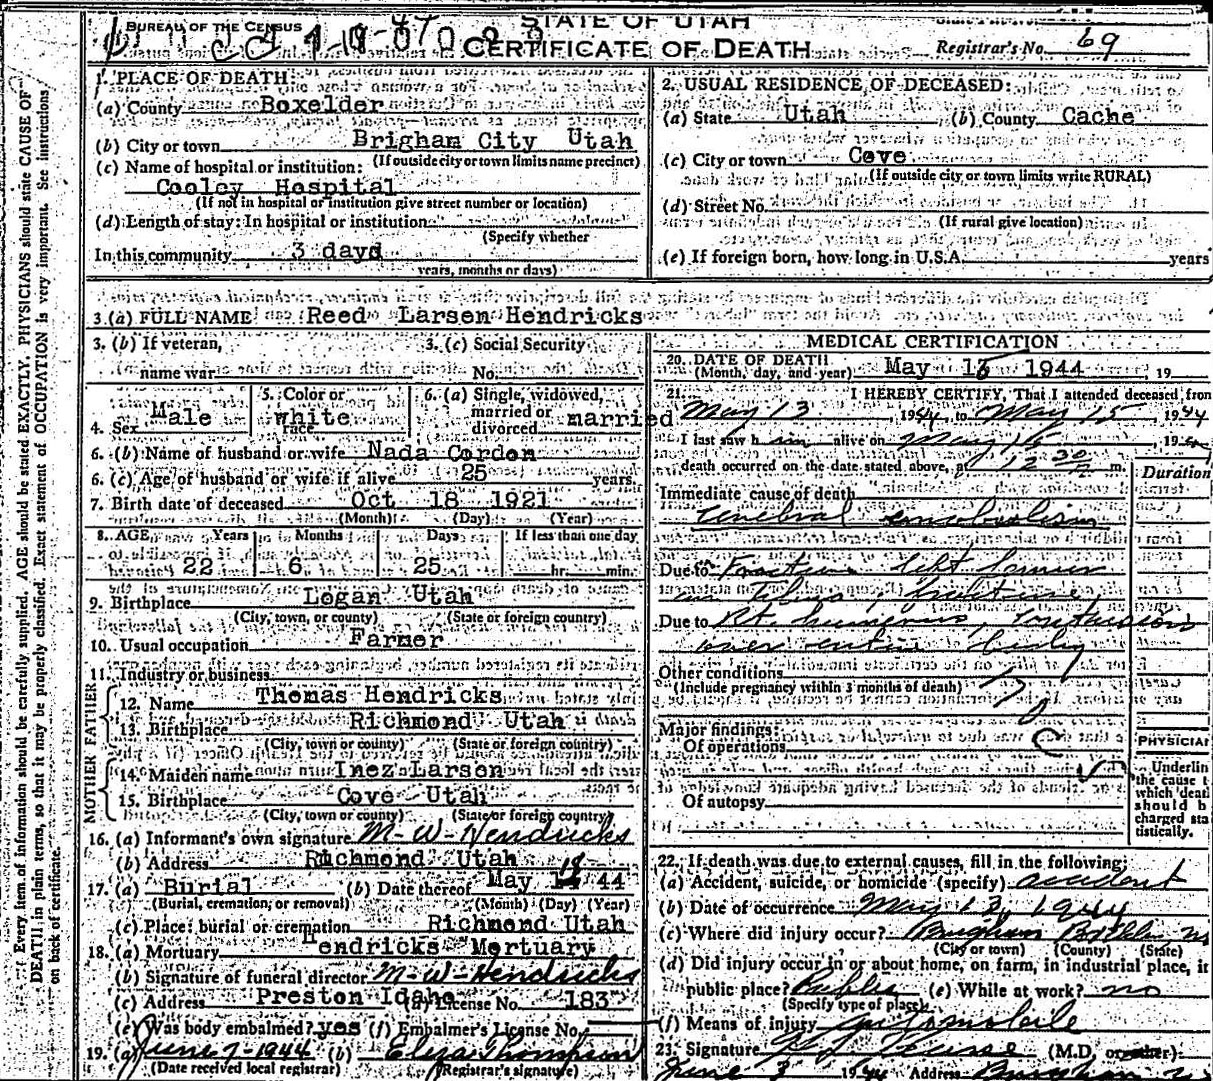 BUREAU OF THE CENSUS
STATE OF UTAH
CERTIFICATE OF DEATH
Registrar's No. 69
Every item of information should be carefully supplied. AGE should be stated EXACTLY. PHYSICIANS should state CAUSE OF
DEATH in plain terms, so that it may be properly classified. Exact statement of OCCUPATION is very important. See instructions
on back of certificate.
1. PLACE OF DEATH:
(a) County Boxelder
(b) City or town Brigham City Utah
(If outside city or town limits name precinct)
(c) Name of hospital or institution:
Cooley Hospital
(If not in hospital or institution give street number or location)
(d) Length of stay: In hospital or institution
(Specify whether
In this community 3 dayd
years, months or days)
2. USUAL RESIDENCE OF DECEASED:
(a) State Utah (b) County Cache
(c) City or town Cove
(If outside city or town limits write RURAL)
(d) Street No.
(If rural give location)
(e) If foreign born, how long in U.S.A. years
3. (a) FULL NAME Reed Larsen Hendricks
3. (b) If veteran,
name war
3. (c) Social Security
No.
4. Sex Male
5. Color or race white
6. (a) Single, widowed, married or divorced married
6. (b) Name of husband or wife Nada Cordon
6. (c) Age of husband or wife if alive 25 years.
7. Birth date of deceased Oct 18 1921
(Month) (Day) (Year)
8. AGE Years Months Days If less than one day
22 6 25 hr. min.
9. Birthplace Logan Utah
(City, town, or county) (State or foreign country)
10. Usual occupation Farmer
11. Industry or business
FATHER
12. Name Thomas Hendricks
13. Birthplace Richmond Utah
(City, town or county) (State or foreign country)
MOTHER
14. Maiden name Inez Larsen
15. Birthplace Cove Utah
(City, town or county) (State or foreign country)
16. (a) Informant's own signature M-W-Hendricks
(b) Address Richmond Utah
17. (a) Burial (b) Date thereof May 18 44
(Burial, cremation, or removal) (Month) (Day) (Year)
(c) Place: burial or cremation Richmond Utah
18. (a) Mortuary Hendricks Mortuary
(b) Signature of funeral director M-W-Hendricks
(c) Address Preston Idaho (d) License No. 183
(e) Was body embalmed? yes (f) Embalmer's License No.
19. (a) June 7-1944 (b) Eliza Thompson
(Date received local registrar) (Registrar's signature)
MEDICAL CERTIFICATION
20. DATE OF DEATH
(Month, day, and year) May 15 1944 19
21. I HEREBY CERTIFY, That I attended deceased from
May 13 1944 to May 15 1944
I last saw him alive on May 15 19
death occurred on the date stated above, at 12 30 m.
Duration
Immediate cause of death
cerebral embolism
Due to Fracture left femur
Due to Rt. humerus, contusion
over entire body
Other conditions
(Include pregnancy within 3 months of death)
Major findings:
Of operations
Of autopsy
PHYSICIAN
Underlin
the cause t
which deat
should b
charged sta
tistically.
22. If death was due to external causes, fill in the following:
(a) Accident, suicide, or homicide (specify) accident
(b) Date of occurrence May 13, 1944
(c) Where did injury occur? Brigham
(City or town) (County) (State)
(d) Did injury occur in or about home, on farm, in industrial place, in
public place? Public (e) While at work? no
(Specify type of place)
(f) Means of injury automobile
23. Signature (M.D. or other):
June 3 1944 Address Brigham